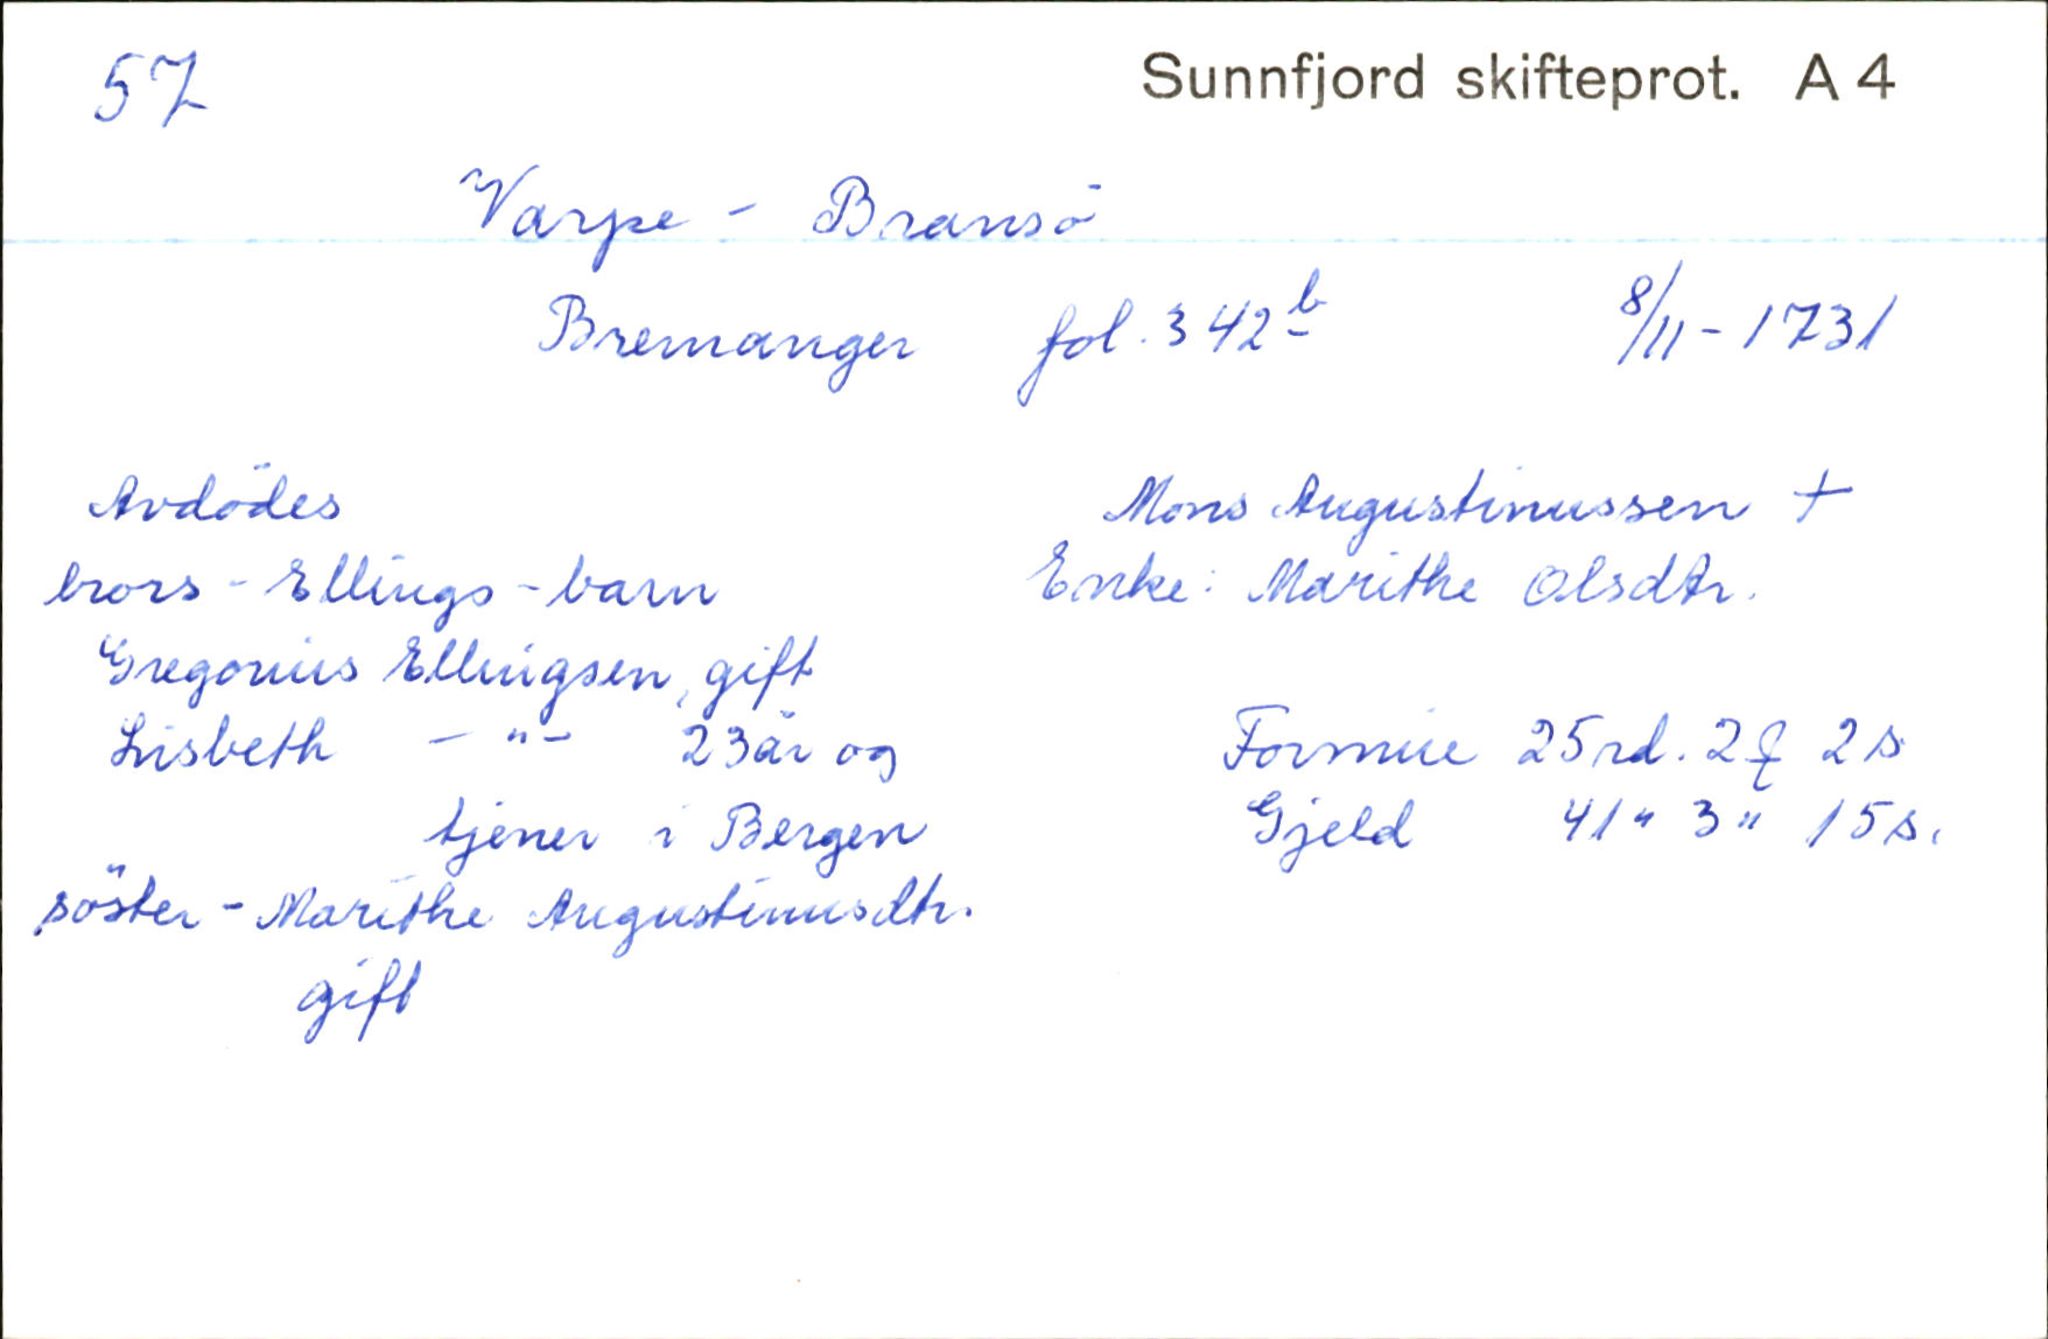 57 Sunnfjord skifteprot. A 4
Varpe - Bransö
Bremanger fol. 342 b 8/11 - 1731
Avdödes
brors - Ellings - barn
Gregorius Ellingsen, gift
Lisbeth - " - 23 år og
tjener i Bergen
söster - Marithe Augustinusdtr.
gift
Mons Augustinussen +
Enke: Marithe Olsdtr.
Formue 25 rd. 2 2 s
Gjeld 41 " 3 " 15 s.